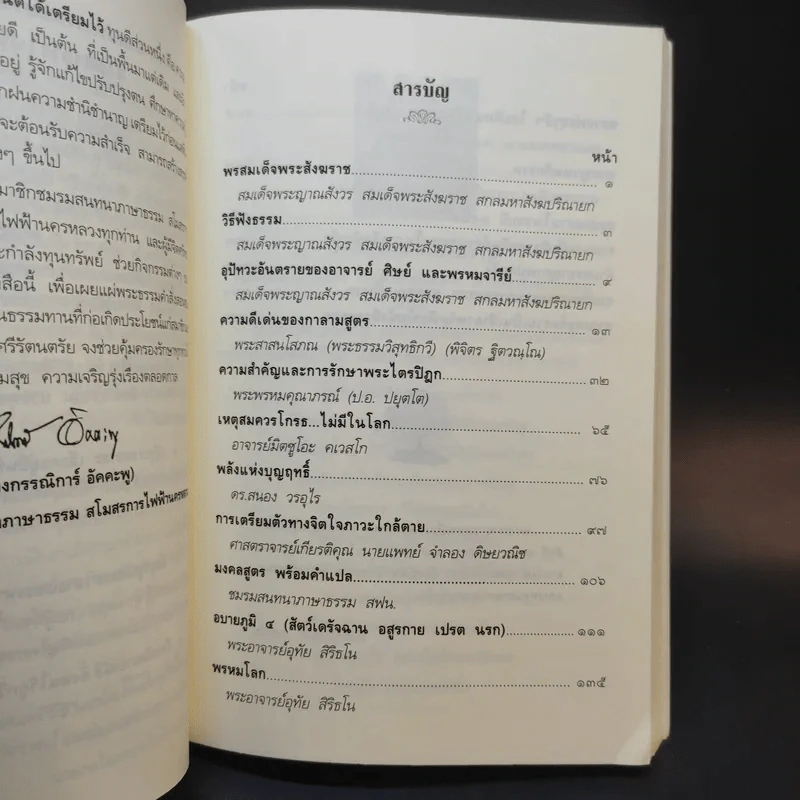 นิตได้เตรียมไว้ ทุนดีส่วนหนึ่ง คือ
เป็นต้น ที่เป็นพื้นมาแต่เดิม
อยู่ รู้จักแก้ไขปรับปรุงตน
กฝนความชำนิชำนาญ เตรียมไว้ก่อน
จะต้อนรับความสำเร็จ
งๆ ขึ้นไป
มาชิกชมรมสนทนาภาษาธรรม
ไฟฟ้านครหลวงทุกท่าน
ะกำลังทุนทรัพย์ ช่วยกิจกรรมต่างๆ
สือนี้ เพื่อเผยแผ่พระธรรมคำสั่งสอน
นธรรมทานที่ก่อเกิดประโยชน์
ศรีรัตนตรัย จงช่วยคุ้มครองรักษา
มสุข ความเจริญรุ่งเรืองตลอดกาล
างกรรณิการ์ อัคคะพู)
าภาษาธรรม สโมสรการไฟฟ้านครหลวง
สารบัญ
หน้า
พรสมเด็จพระสังฆราช.....................................................๑
สมเด็จพระญาณสังวร สมเด็จพระสังฆราช สกลมหาสังฆปริณายก
วิธีฟังธรรม.....................................................๓
สมเด็จพระญาณสังวร สมเด็จพระสังฆราช สกลมหาสังฆปริณายก
อุปัทวะอันตรายของอาจารย์ ศิษย์ และพรหมจารีย์...............๙
สมเด็จพระญาณสังวร สมเด็จพระสังฆราช สกลมหาสังฆปริณายก
ความดีเด่นของกาลามสูตร.....................................................๑๓
พระสาสนโสภณ (พระธรรมวิสุทธิกวี) (พิจิตร ฐิตวณฺโณ)
ความสำคัญและการรักษาพระไตรปิฎก...............................๓๒
พระพรหมคุณาภรณ์ (ป.อ. ปยุตโต)
เหตุสมควรโกรธ...ไม่มีในโลก.....................................................๖๕
อาจารย์มิตซูโอะ คเวสโก
พลังแห่งบุญฤทธิ์.....................................................๗๖
ดร.สนอง วรอุไร
การเตรียมตัวทางจิตใจภาวะใกล้ตาย...............................๙๗
ศาสตราจารย์เกียรติคุณ นายแพทย์ จำลอง ดิษยวณิช
มงคลสูตร พร้อมคำแปล.....................................................๑๐๖
ชมรมสนทนาภาษาธรรม สฟน.
อบายภูมิ ๔ (สัตว์เดรัจฉาน อสูรกาย เปรต นรก)....................๑๑๑
พระอาจารย์อุทัย สิริธโน
พรหมโลก.....................................................๑๓๕
พระอาจารย์อุทัย สิริธโน